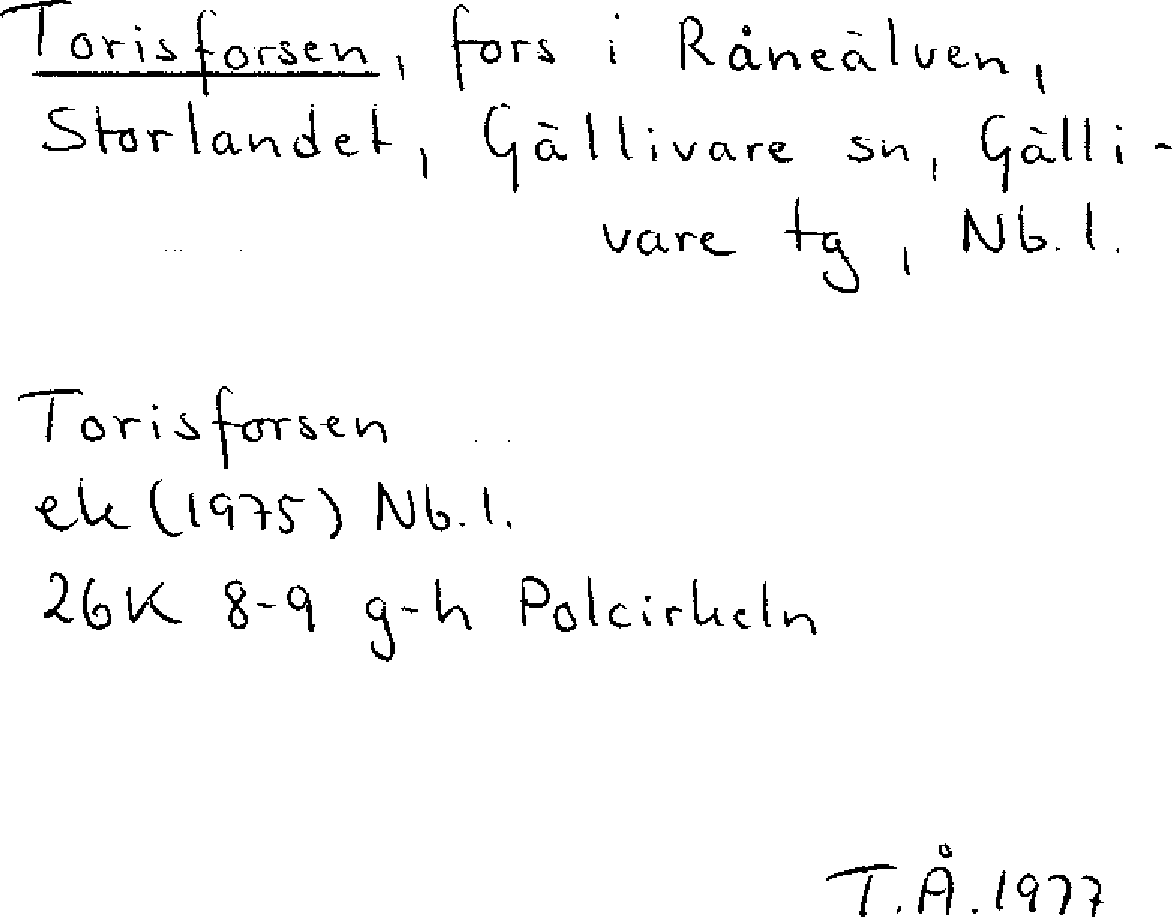 Torisforsen, fors i Råneälven,
Storlandet, Gällivare sn, Gälli-
vare tg, Nb. l.
Torisforsen
ek (1975) Nb. l.
26K 8-9 g-h Polcirkeln
T.Å. 1977